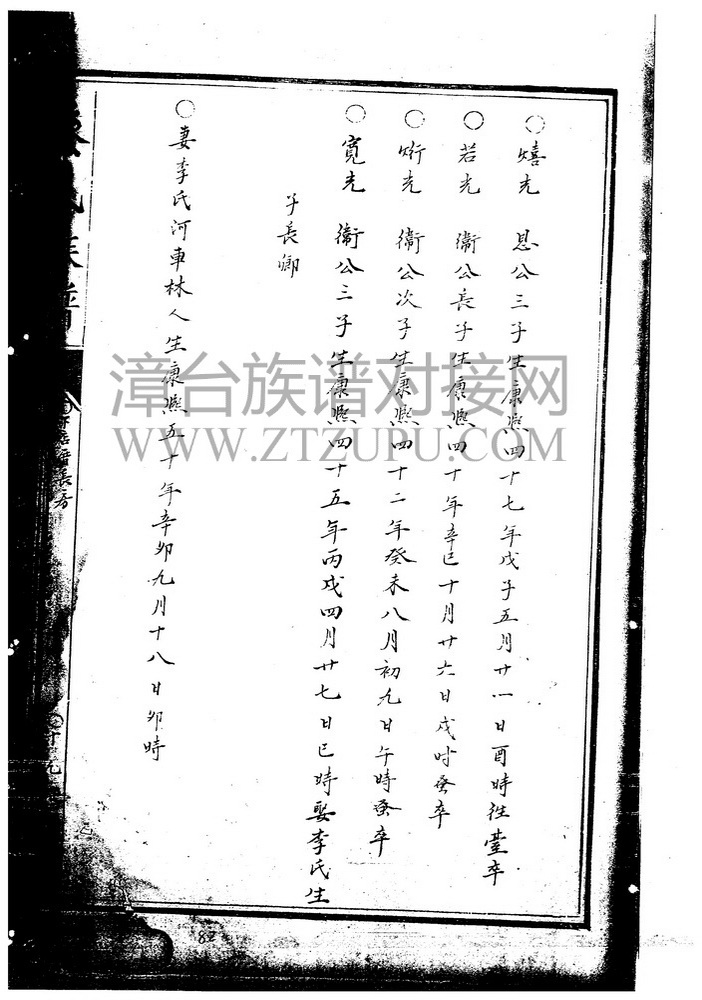 ○熺光 恩公三子生康熙四十七年戊子五月廿一日酉時往臺卒
○若光 衞公長子生康熙四十年辛巳十月廿六日戌时蚤卒
○衍光 衞公次子生康熙四十二年癸未八月初九日午時蚤卒
○寬光 衞公三子生康熙四十五年丙戌四月廿七日巳時娶李氏生
子長卿
○妻李氏河車林人生康熙五十年辛卯九月十八日卯時
族譜
長房
十九
82
漳台族谱对接网
WWW.ZTZUPU.COM